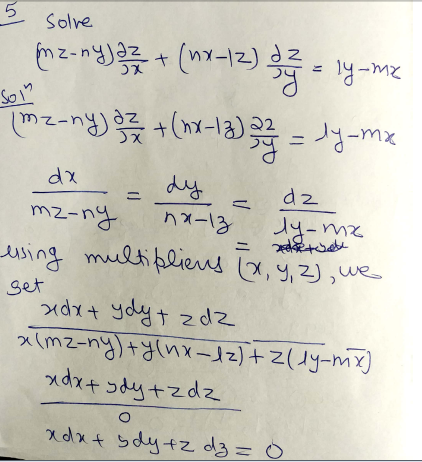 5 Solve
(mz-ny) ∂z/∂x + (nx-lz) ∂z/∂y = ly-mx
Solⁿ
(mz-ny) ∂z/∂x + (nx-lz) ∂z/∂y = ly-mx
dx/(mz-ny) = dy/(nx-lz) = dz/(ly-mx)
=
using multipliers (x, y, z), we
get
xdx + ydy + zdz
x(mz-ny)+y(nx-lz)+z(ly-mx)
xdx + ydy + zdz
0
xdx + ydy + z dz = 0